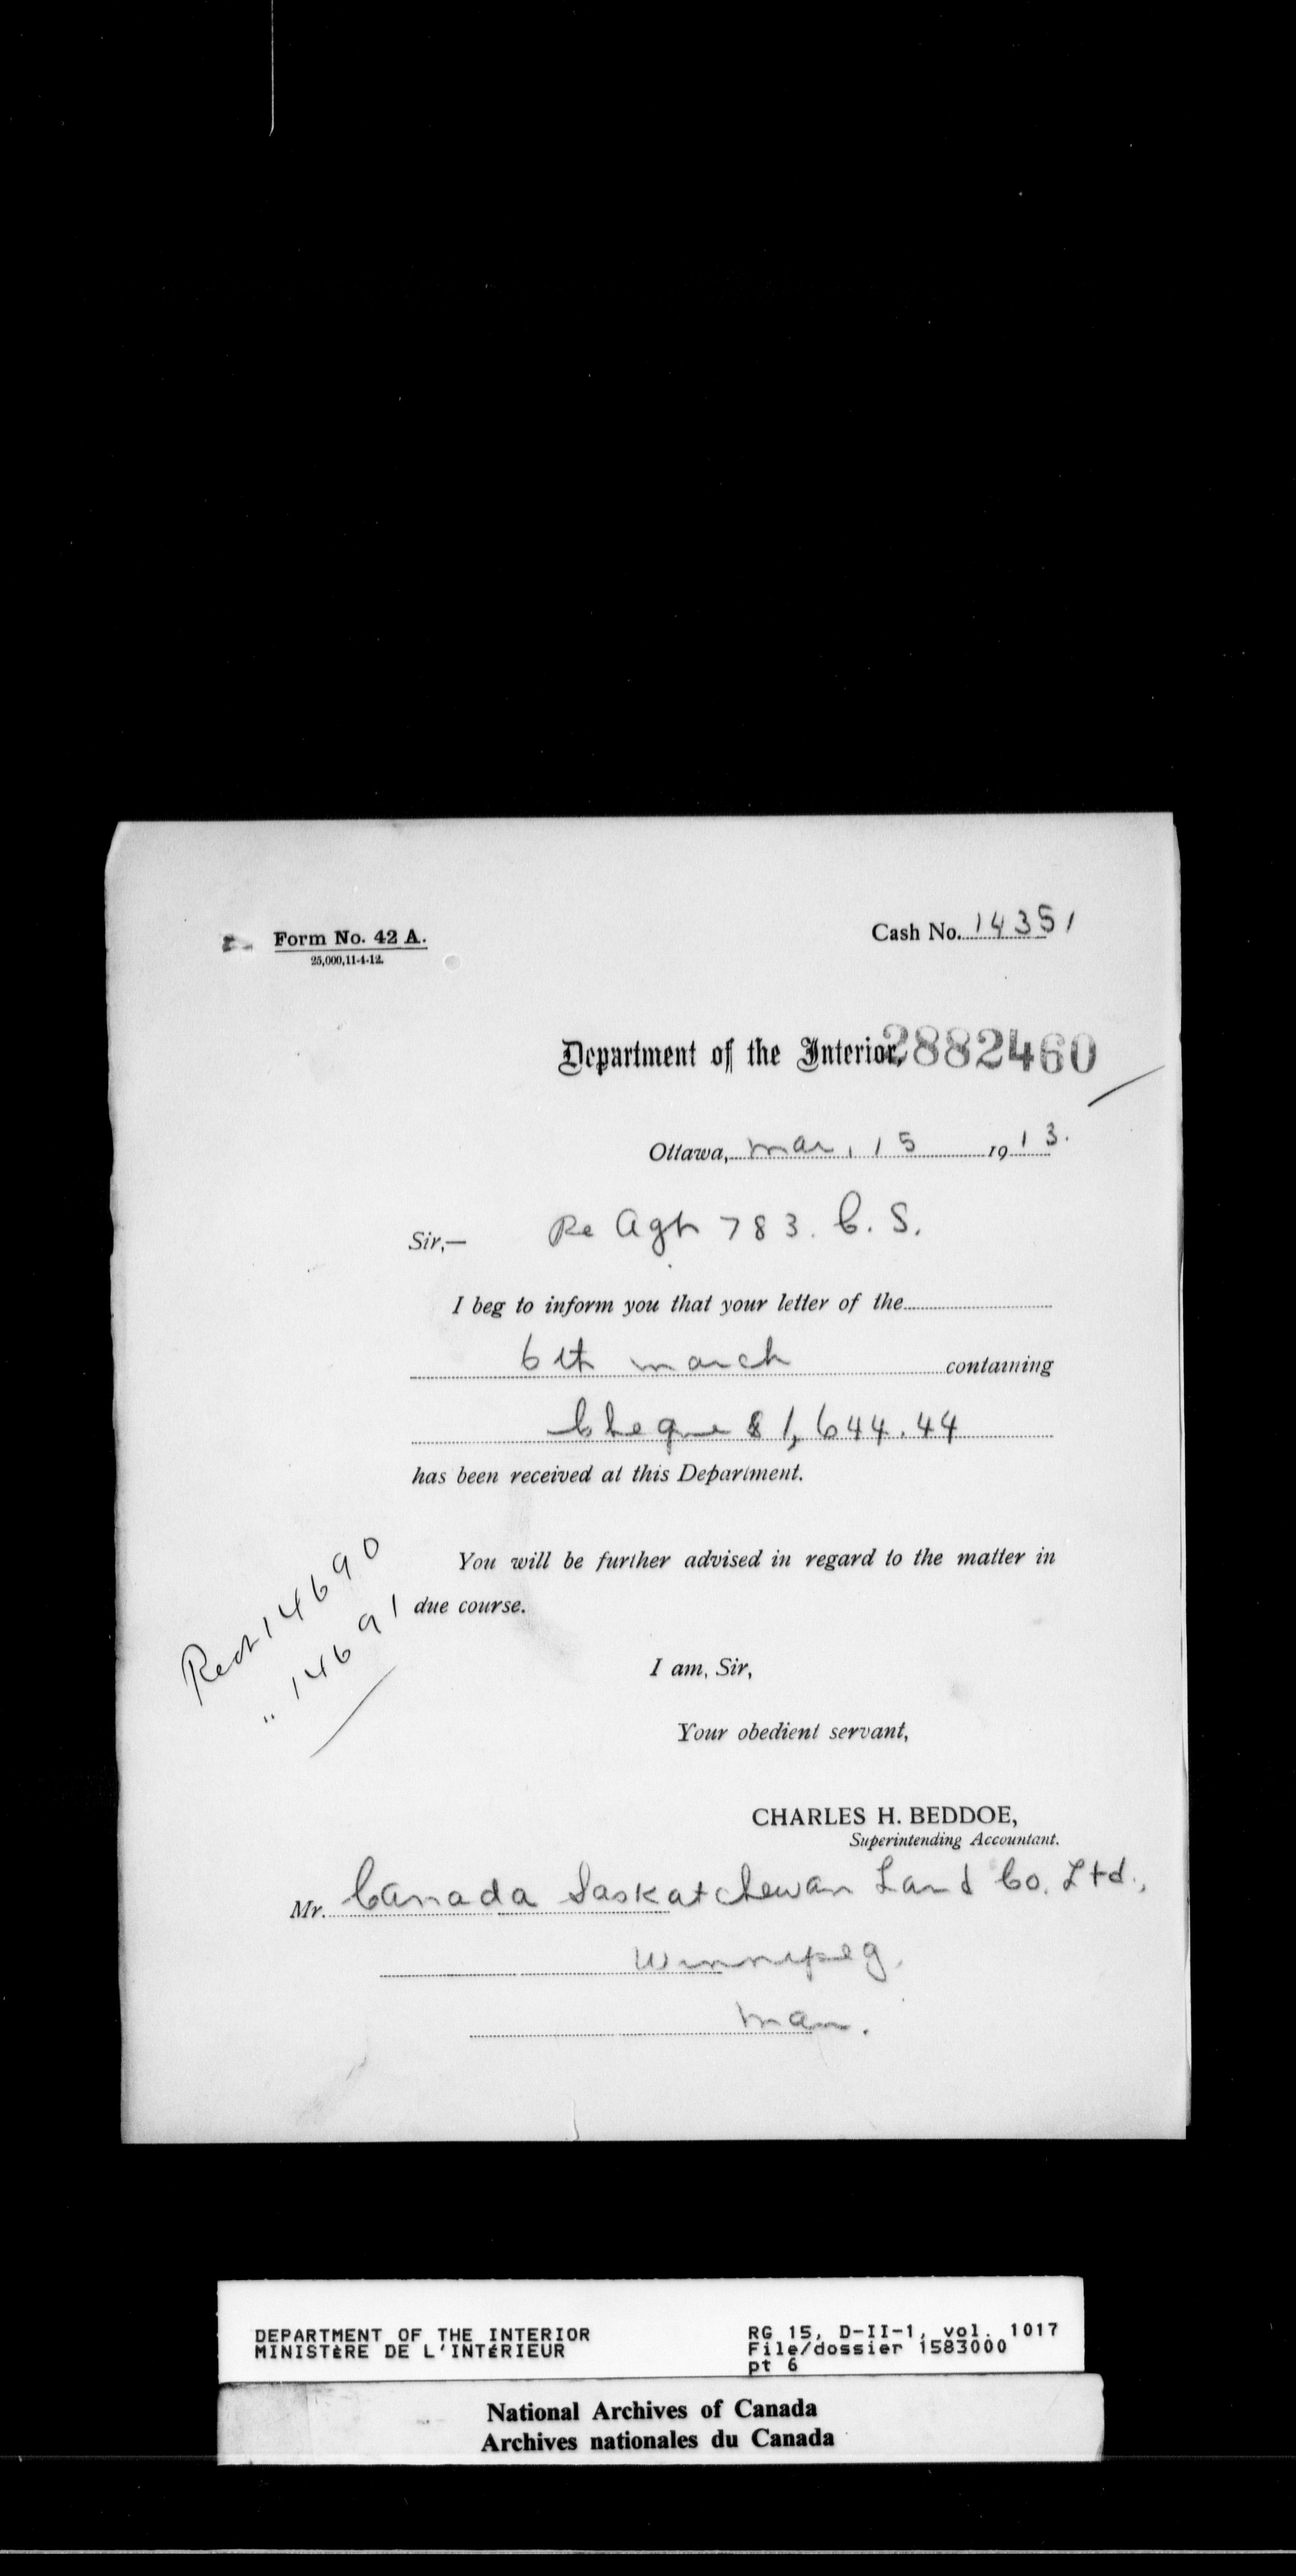 Form No. 42 A.
25,000,11-4-12.
Cash No. 14351
Department of the Interior,
2882460
Ottawa, Mar, 15 1913.
Sir,— Re Agt 783. C. S.
I beg to inform you that your letter of the
6th March containing
Cheque $1,644.44
has been received at this Department.
You will be further advised in regard to the matter in
due course.
Rect 14690
" 14691
I am, Sir,
Your obedient servant,
CHARLES H. BEDDOE,
Superintending Accountant.
Mr. Canada Saskatchewan Land Co. Ltd.,
Winnipeg,
Man.
DEPARTMENT OF THE INTERIOR
MINISTÈRE DE L'INTÉRIEUR
RG 15, D-II-1, vol. 1017
File/dossier 1583000
pt 6
National Archives of Canada
Archives nationales du Canada